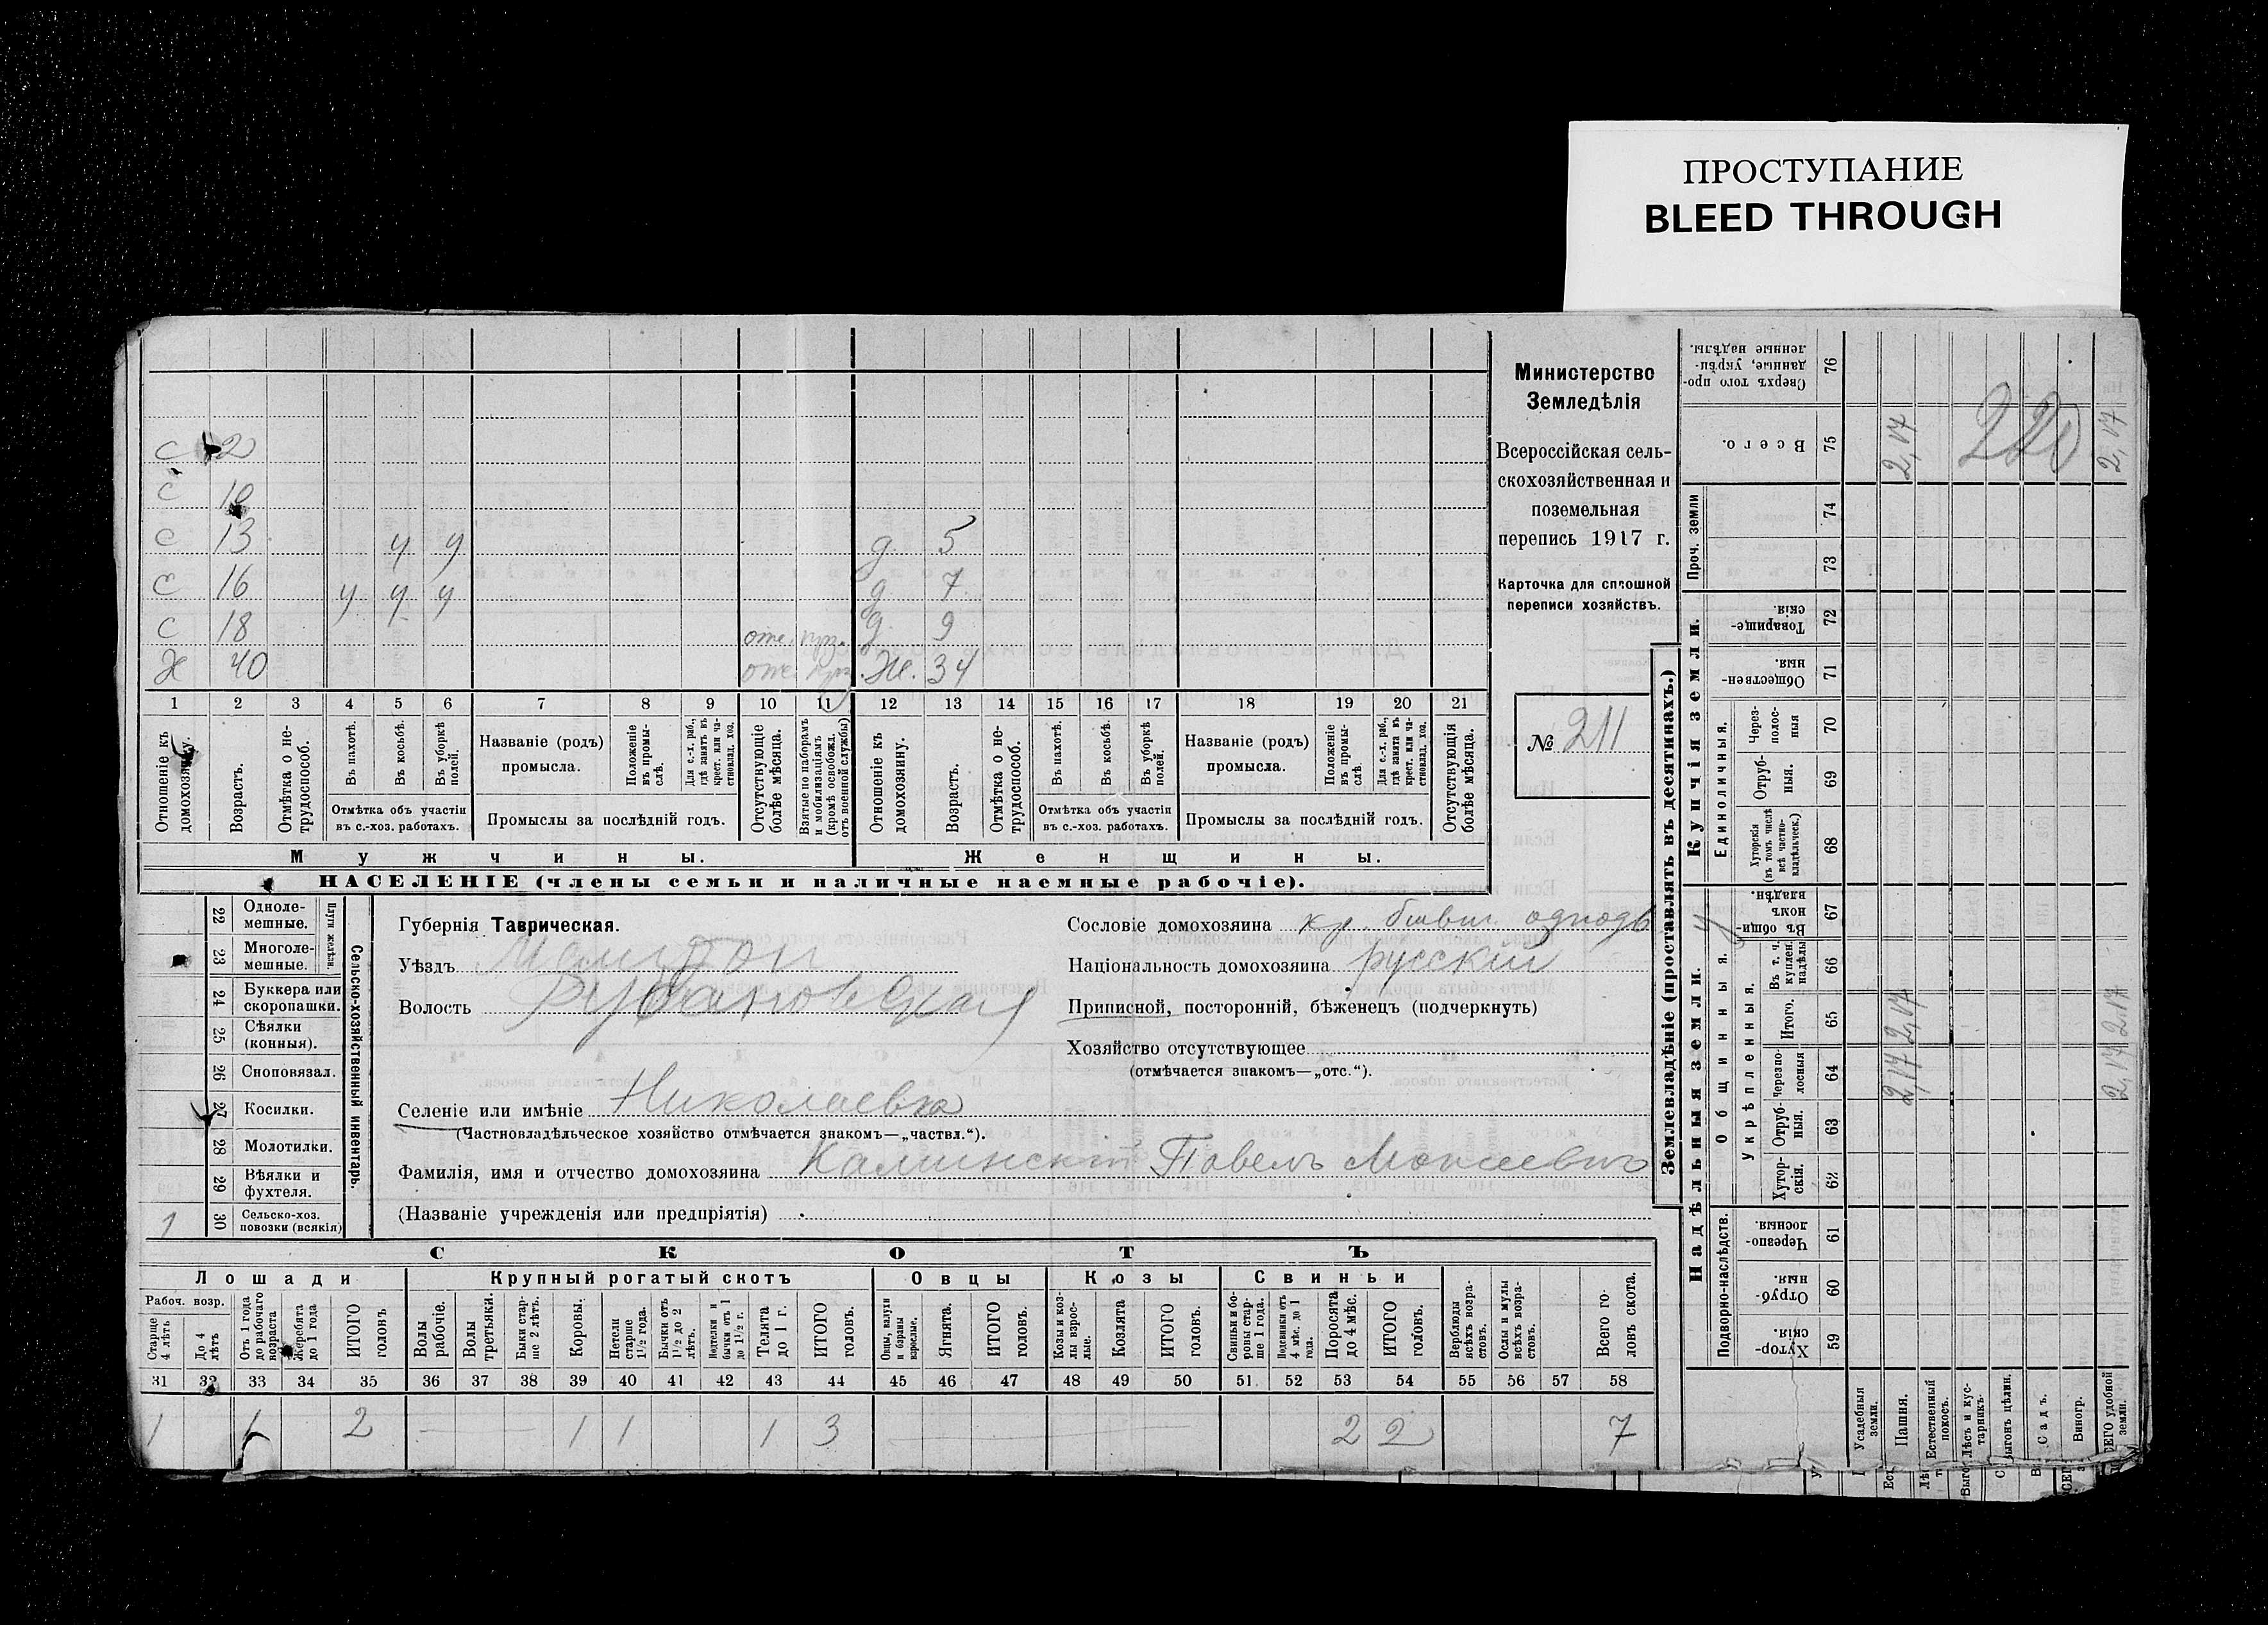 ПРОСТУПАНИЕ
BLEED THROUGH
Министерство
Земледѣлія
Всероссійская сель-
скохозяйственная и
поземельная
перепись 1917 г.
Карточка для сплошной
переписи хозяйствъ.
№ 211
с 2
с 10
с 13 у у д. 5
с 16 у у у д 7
с 18 д. 9
Х 40 Ж. 34
1 2 3 4 5 6 7 8 9 10 11 12 13 14 15 16 17 18 19 20 21
Отношеніе къ домохозяину.
Возрастъ.
Отмѣтка о не-трудоспособ.
Въ пахотѣ.
Въ косьбѣ.
Въ уборкѣ полей.
Отмѣтка объ участіи
въ с.-хоз. работахъ.
Названіе (родъ)
промысла.
Положеніе въ промы-слѣ.
Для с.-х. раб., гдѣ занятъ въ крест. или ча-стновлад. хоз.
Промыслы за послѣдній годъ.
Отсутствующіе болѣе мѣсяца.
Взятые по наборамъ и мобилизаціямъ (кромѣ освобожд. отъ военной службы)
Отношеніе къ домохозяину.
Возрастъ.
Отмѣтка о не-трудоспособ.
Въ пахотѣ.
Въ косьбѣ.
Въ уборкѣ полей.
Отмѣтка объ участіи
въ с.-хоз. работахъ.
Названіе (родъ)
промысла.
Положеніе въ промы-слѣ.
Для с.-х. раб., гдѣ занята въ крест. или ча-стновлад. хоз.
Промыслы за послѣдній годъ.
Отсутствующія болѣе мѣсяца.
Мужчины.
Женщины.
НАСЕЛЕНІЕ (члены семьи и наличные наемные рабочіе).
22 Одноле-мешные.
23 Многоле-мешные.
Плуги желѣзн.
24 Буккера или скоропашки.
25 Сѣялки (конныя).
26 Сноповязал.
27 Косилки.
28 Молотилки.
29 Вѣялки и фухтеля.
1 30 Сельско-хоз. повозки (всякія)
Сельско-хозяйственный инвентарь.
Губернія Таврическая.
Уѣздъ Мелитоп
Волость Рубановская
Селеніе или имѣніе Николаевка
(Частновладѣльческое хозяйство отмѣчается знакомъ—„частвл.“).
Фамилія, имя и отчество домохозяина Калинскій Павелъ Моисеевич
(Названіе учрежденія или предпріятія)
Сословіе домохозяина кр. бывш. однодв
Національность домохозяина русскій
Приписной, посторонній, бѣженецъ (подчеркнуть)
Хозяйство отсутствующее
(отмѣчается знакомъ—„отс.“).
СКОТЪ
Лошади
Крупный рогатый скотъ
Овцы
Козы
Свиньи
Рабоч. возр.
Старше 4 лѣтъ
До 4 лѣтъ
Отъ 1 года до рабочаго возраста
Жеребята до 1 года
ИТОГО головъ
Волы рабочіе.
Волы третьяки.
Быки стар-ше 2 лѣтъ.
Коровы.
Нетели старше 1½ года.
Бычки отъ 1½ до 2 лѣтъ.
Нетелки и бычки отъ 1 до 1½ г.
Телята до 1 г.
ИТОГО головъ.
Овцы, валухи и бараны взрослые.
Ягнята.
ИТОГО головъ.
Козы и коз-лы взрос-лые.
Козлята
ИТОГО головъ.
Свиньи и бо-ровы стар-ше 1 года.
Подсвинки отъ 4 мѣс. до 1 года.
Поросята до 4 мѣс.
ИТОГО головъ.
Верблюды всѣхъ возра-стовъ.
Ослы и мулы всѣхъ возра-стовъ.
Всего го-ловъ скота.
31 32 33 34 35 36 37 38 39 40 41 42 43 44 45 46 47 48 49 50 51 52 53 54 55 56 57 58
1 1 2 1 1 1 3 2 2 7
Землевладѣніе (проставлять въ десятинахъ.)
Надѣльныя земли.
Купчія земли.
Проч. земли
Подворно-наслѣдств.
Общинныя.
Укрѣпленныя.
Единоличныя.
Хутор-скія. 59
Отруб-ныя. 60
Черезпо-лосныя. 61
Хутор-скія. 62
Отруб-ныя. 63
Черезпо-лосныя 64
Итого. 65
Въ т. ч. куплен. надѣлы 66
Въ общи-номъ владѣн. 67
Хуторскія (въ томъ числѣ всѣ частно-владѣльческ.) 68
Отруб-ныя. 69
Через-полос-ныя 70
Обществен-ныя. 71
Товарище-скія. 72
73
74
Всего. 75
Сверхъ того про-данные, укрѣп-ленные надѣлы. 76
Усадебныя земли.
Пашня. 2,17 2,17 2,17
Естественный покосъ.
Лѣсъ и кус-тарникъ.
Садъ.
Виногр.
2,17 2,17 2,17
220